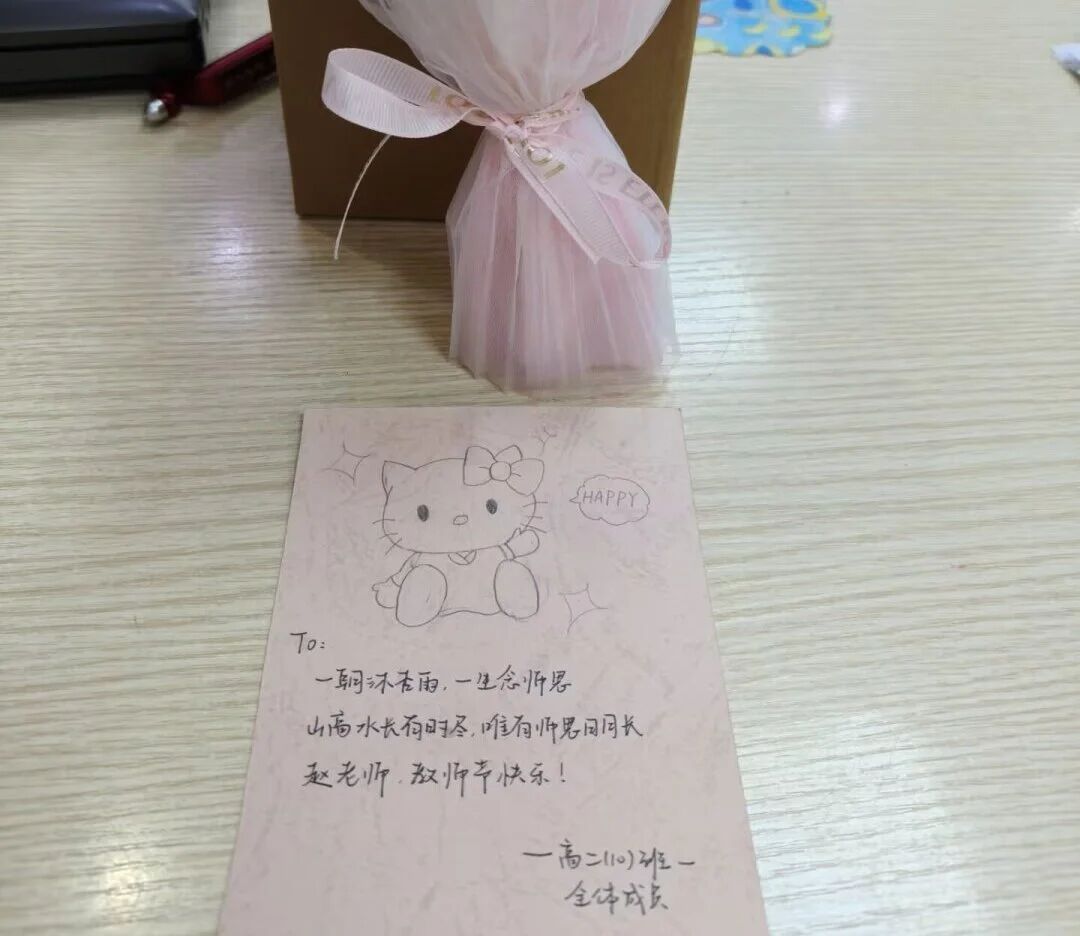 HAPPY
To:
一朝沐杏雨,一生念师恩
山高水长有时尽,唯有师恩日月长
赵老师,教师节快乐!
一高二(10)班一
全体成员